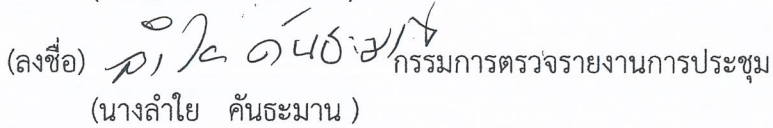 (ลงชื่อ) ลำใย คันธะมาน กรรมการตรวจรายงานการประชุม
(นางลำใย คันธะมาน )